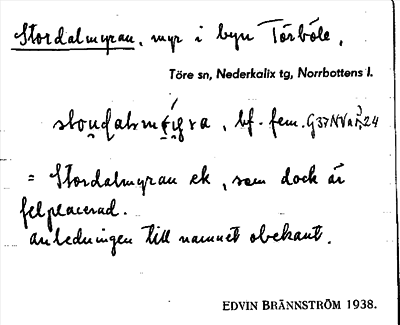 Stordalmyran, myr i byn Törböle,
Töre sn, Nederkalix tg, Norrbottens l.
bf. fem.
= Stordalmyran ek, som dock är
felplacerad.
anledningen till namnet obekant.
EDVIN BRÄNNSTRÖM 1938.